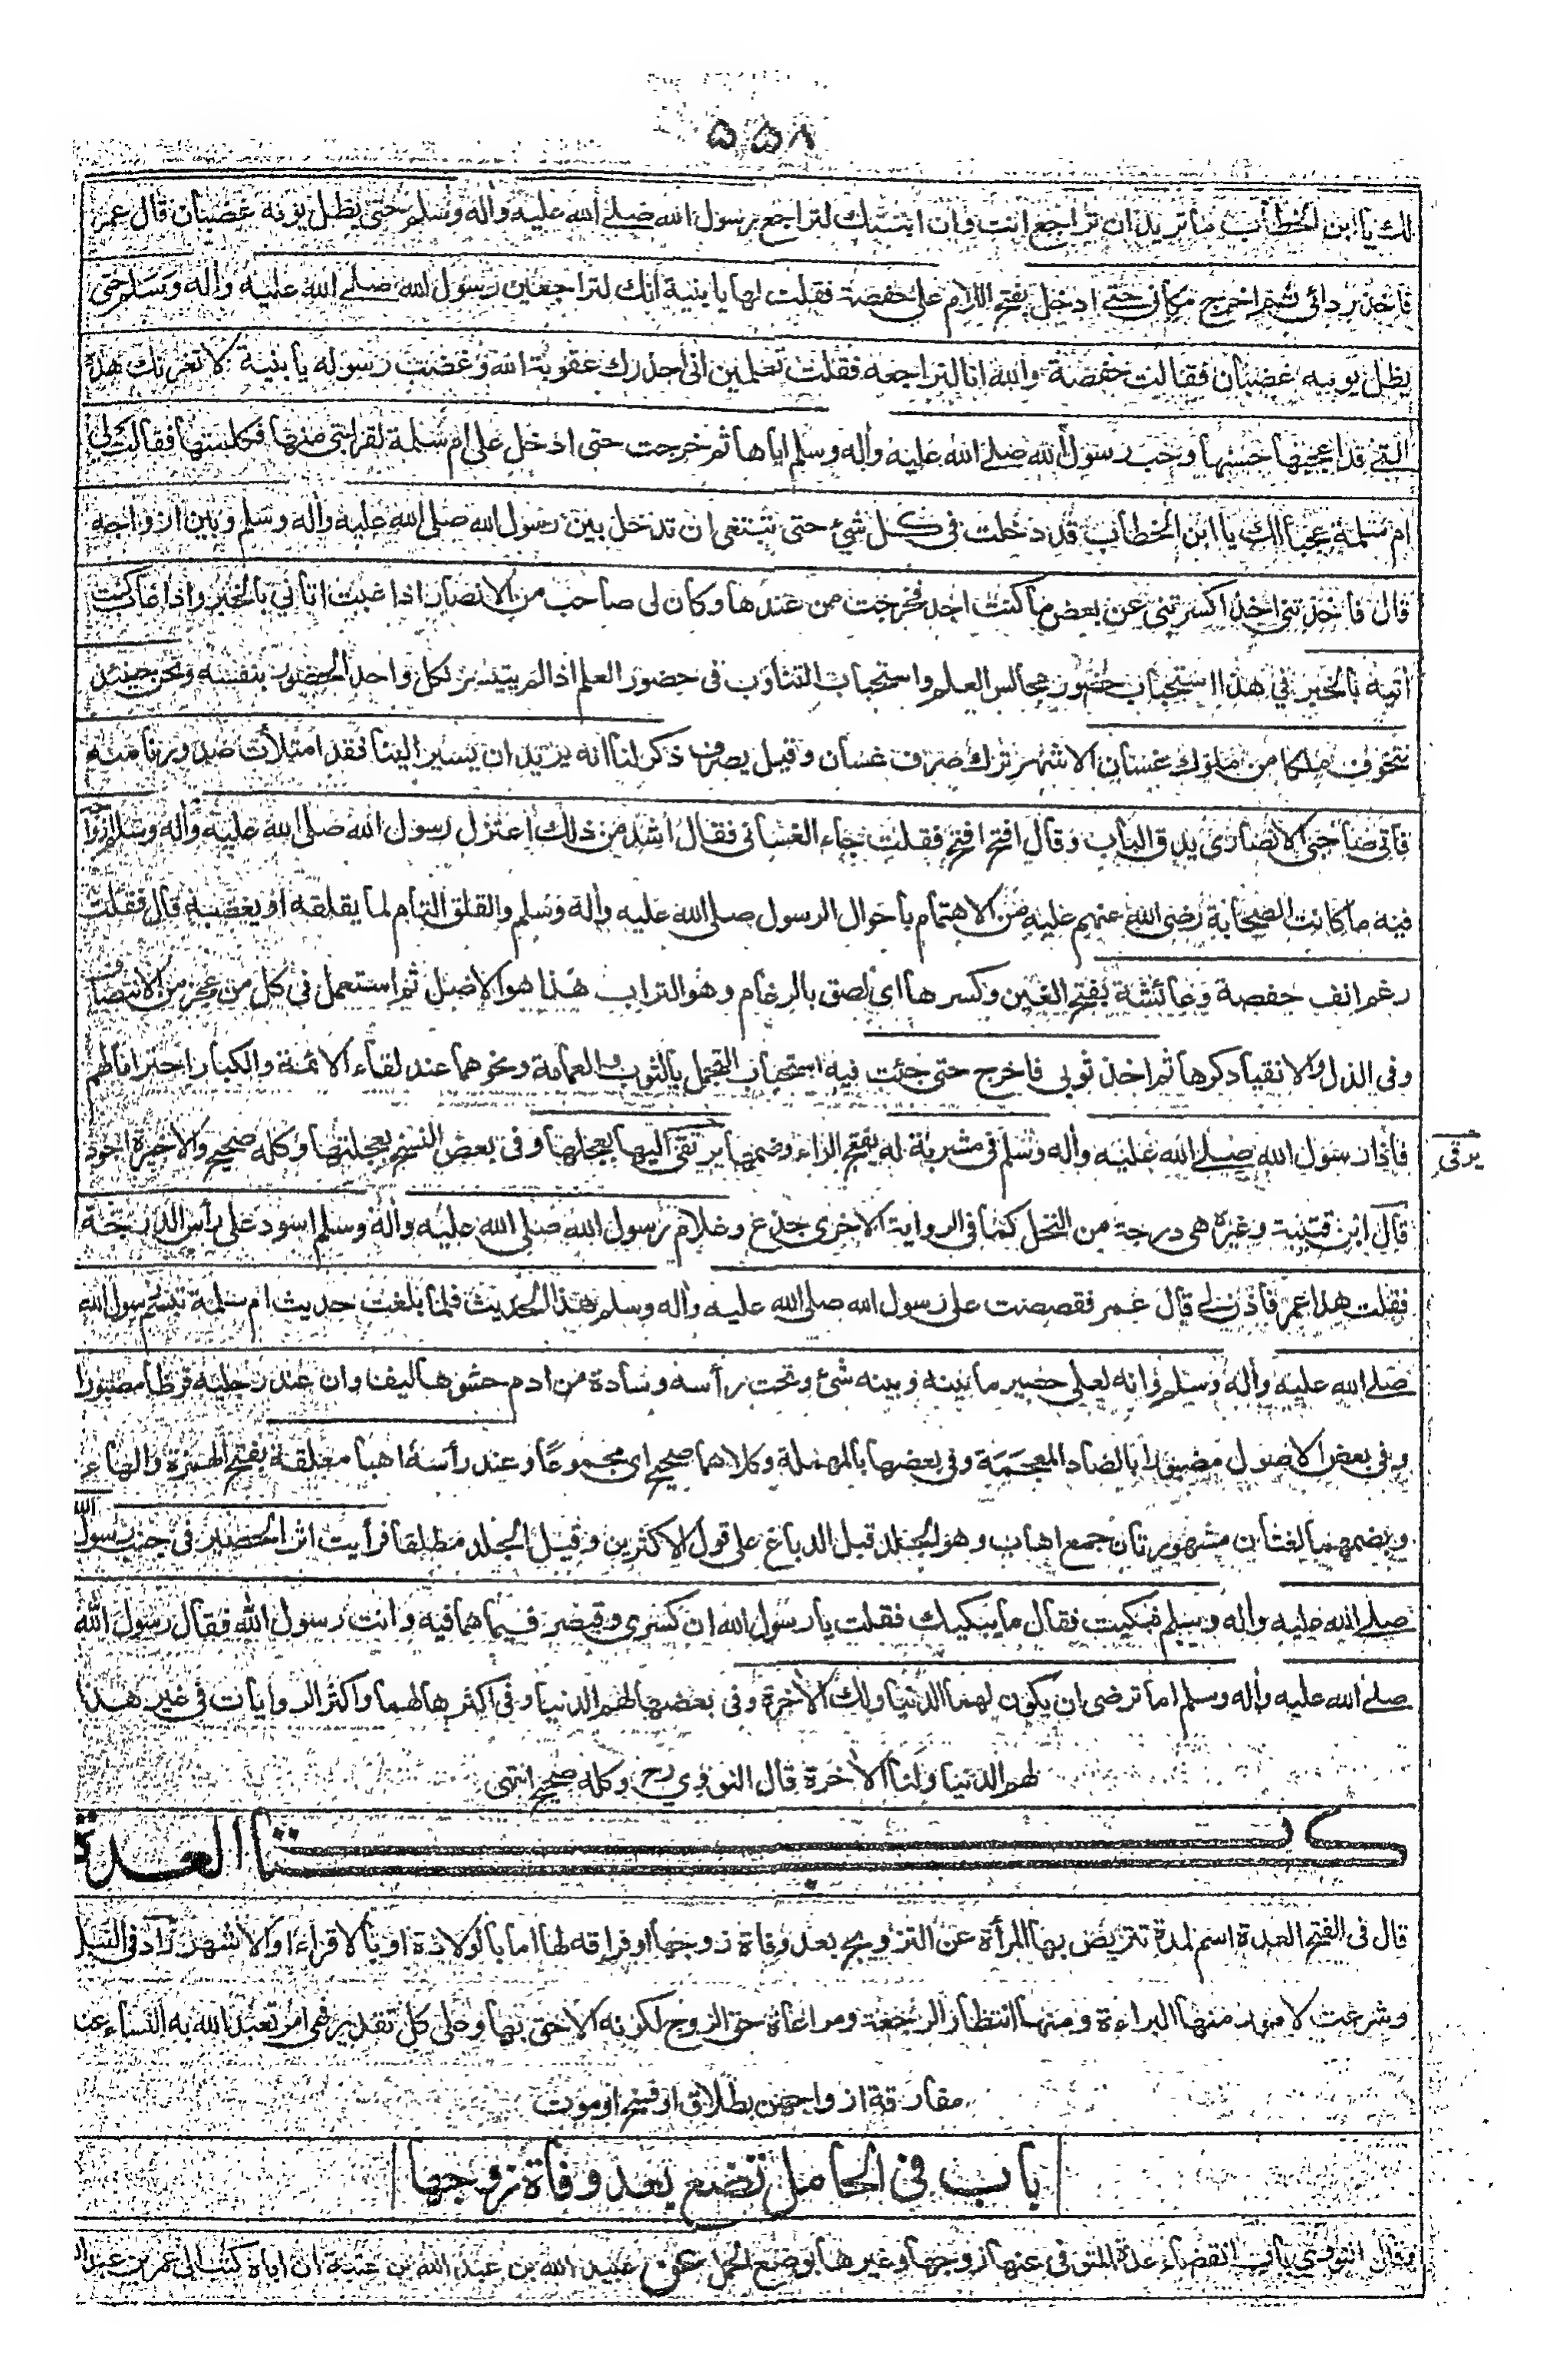 ٥٥٨
لك يا ابن الخطاب ما تريد ان تراجع انت وان ابنتك لتراجع رسول الله صلے الله عليه وأله وسلم حتى يظل يومه غضبان قال عمر
فاخذ ردائى ثم اخرج مكانى حتے ادخل بفتح اللام على حفصة فقلت لها يا بنية انك لتراجعين رسول الله صلے الله عليه وأله وسلم حتى
يظل يومه غضبان فقالت حفصة والله انا لنراجعه فقلت تعلمين انى احذرك عقوبة الله وغضب رسوله يا بنية لا تغرنك هذه
التے قد اعجبها حسنها وحب رسول الله صلے الله عليه وأله وسلم اياها ثم خرجت حتى ادخل على ام سلمة لقرابتى منها فكلمتها فقالت لى
ام سلمة عجبا لك يا ابن الخطاب قد دخلت فى كل شئ حتى تبتغى ان تدخل بين رسول الله صلى الله عليه وأله وسلم وبين ازواجه
قال فاخذتنى اخذا كسرتنى عن بعض ما كنت اجد فخرجت من عندها وكان لى صاحب من الانصار اذا غبت اتانى بالخبر واذا غاب كنت
أتيه بالخبر فى هذا استحباب حضور مجالس العلم واستحباب التناوب فى حضور العلم اذا لم يتيسر لكل واحد الحضور بنفسه ونحن حينئذ
نتخوف ملكا من ملوك غسان الاشهر ترك صرف غسان وقيل يصرف ذكر لنا انه يريد ان يسير الينا فقد امتلأت صدورنا منه
فاتى صاحبى الانصارى يدق الباب وقال افتح افتح فقلت جاء الغسانى فقال اشد من ذلك اعتزل رسول الله صلى الله عليه وأله وسلم ازواجه
فيه ما كانت الصحابة رضى الله عنهم عليه من الاهتمام بأحوال الرسول صلى الله عليه وأله وسلم والقلق التام لما يقلقه او يغضبه قال فقلت
رغم انف حفصة وعائشة بفتح الغين وكسرها اى لصق بالرغام وهو التراب هذا هو الاصل ثم استعمل فى كل من عجز من الانتصاف
وفى الذل والانقياد كرها ثم اخذ ثوبى فاخرج حتى جئت فيه استحباب التجمل بالثوب والعمامة ونحوهما عند لقاء الائمة والكبار احتراما لهم
فاذا رسول الله صلے الله عليه وأله وسلم فى مشربة له بفتح الراء وضمها يرتقى اليها بعجلها وفى بعض النسخ بعجلتها وكله صحيح والاخيرة اجود
يرقى
قال ابن قتيبة وغيره هى درجة من النخل كما فى الرواية الاخرى جذع وغلام رسول الله صلى الله عليه وأله وسلم اسود على رأس الدرجة
فقلت هذا عمر فاذن لے قال عمر فقصصت على رسول الله صلى الله عليه وأله وسلم هذا الحديث فلما بلغت حديث ام سلمة تبسم رسول الله
صلے الله عليه وأله وسلم وانه لعلى حصير ما بينه وبينه شئ وتحت رأسه وسادة من ادم حشوها ليف وان عند رجليه قرظا مصبورا
وفى بعض الاصول مضبورا بالضاد المعجمة وفى بعضها بالمهملة وكلاهما صحيح اى مجموعا وعند رأسه اهبا معلقة بفتح الهمزة والهاء
وبضمهما لغتان مشهورتان جمع اهاب وهو الجلد قبل الدباغ على قول الاكثرين وقيل الجلد مطلقا فرأيت اثر الحصير فى جنب رسول الله
صلے الله عليه وأله وسلم فبكيت فقال ما يبكيك فقلت يا رسول الله ان كسرى وقيصر فيما هما فيه وانت رسول الله فقال رسول الله
صلے الله عليه وأله وسلم اما ترضى ان يكون لهما الدنيا ولك الأخرة وفى بعضها لهم الدنيا وفى اكثرها لهما واكثر الروايات فى غير هذا
لهم الدنيا ولنا الأخرة قال النووي رح وكله صحيح انتهى
كتاب العدة
قال فى الفتح العدة اسم لمدة تتربص بها المرأة عن التزويج بعد وفاة زوجها او فراقه لها اما بالولادة او بالاقراء او الاشهر زاد فى النيل
وشرعت لامور منها البراءة ومنها انتظار الرجعة ومراعاة حق الزوج لكونه الاحق بها وعلى كل تقدير فهى امر تعبد الله به النساء عند
مفارقة ازواجهن بطلاق او فسخ او موت
باب فى الحامل تضع بعد وفاة زوجها
وقال النووي باب انقضاء عدة المتوفى عنها زوجها وغيرها بوضع الحمل عن عبيد الله بن عبد الله بن عتبة ان اباه كتب الى عمر بن عبد الله